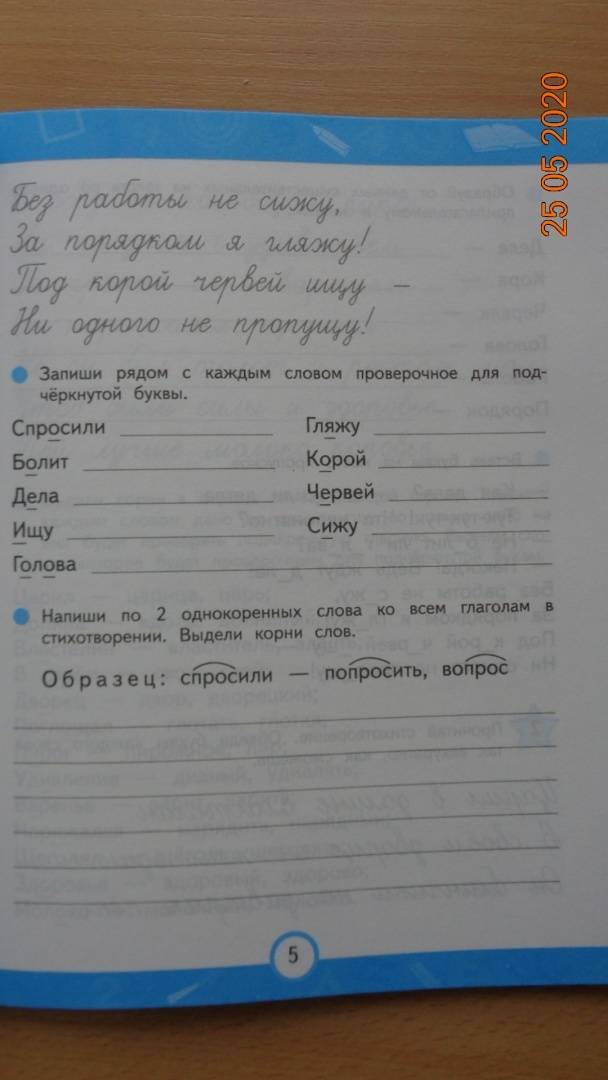 25 05 2020
Без работы не сижу,
За порядком я гляжу!
Под корой червей ищу –
Ни одного не пропущу!
Запиши рядом с каждым словом проверочное для под-
чёркнутой буквы.
Спросили Гляжу
Болит Корой
Дела Червей
Ищу Сижу
Голова
Напиши по 2 однокоренных слова ко всем глаголам в
стихотворении. Выдели корни слов.
Образец: спросили — попросить, вопрос
5